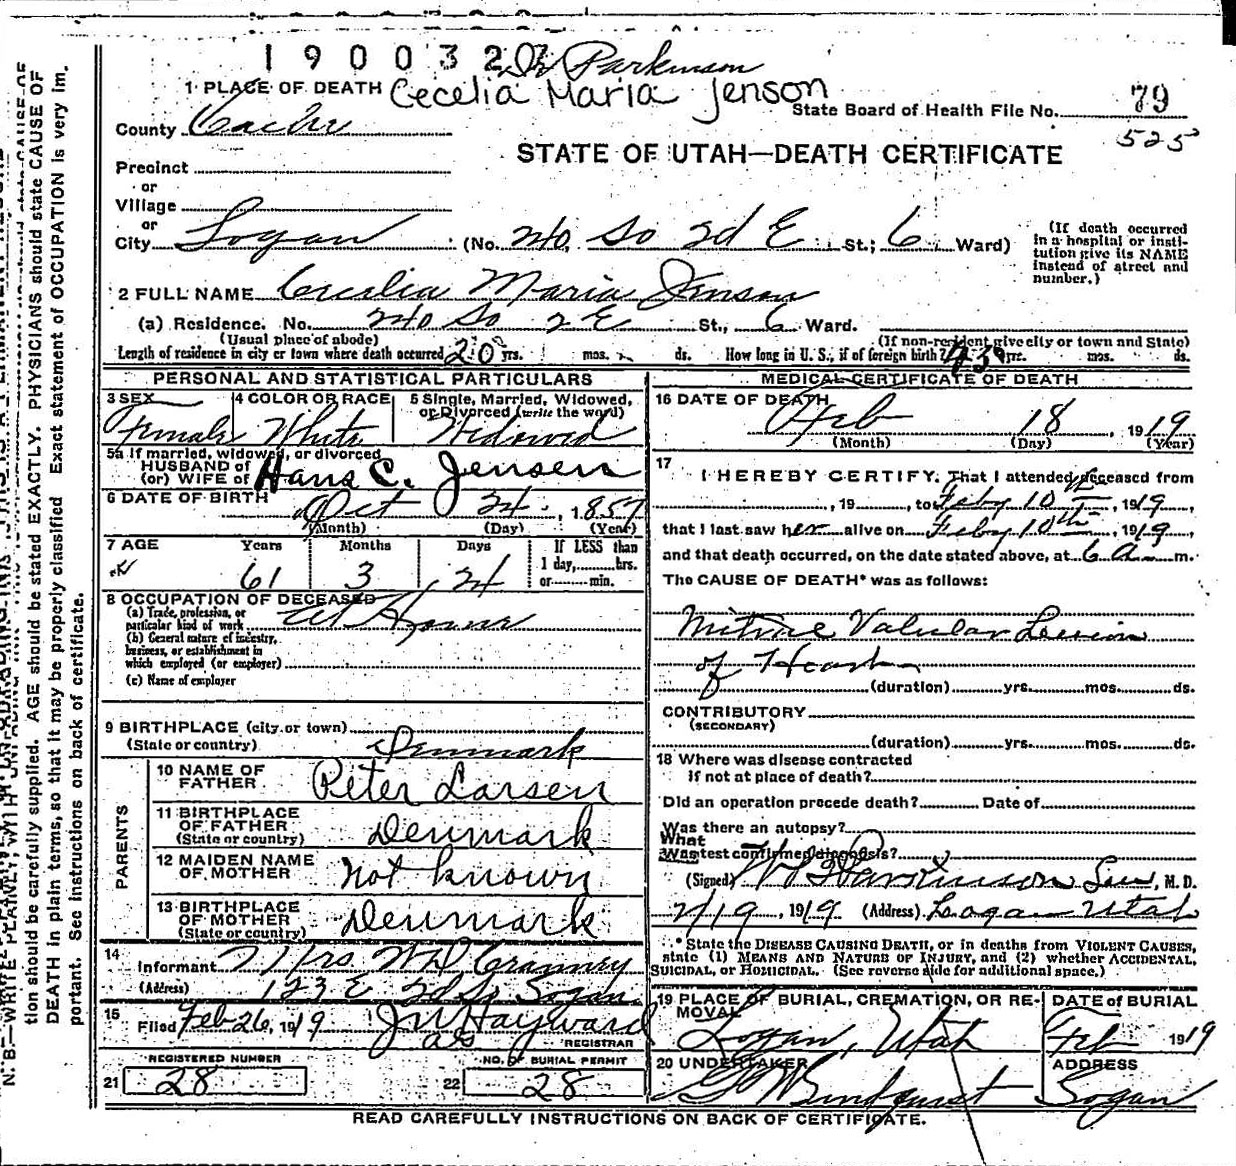 1900327
Dr Parkinson
1 PLACE OF DEATH Cecelia Maria Jenson
State Board of Health File No. 79
County Cache
525
STATE OF UTAH—DEATH CERTIFICATE
Precinct
or
Village
or
City Logan (No. 240 So 2d E St.; 6 Ward)
(If death occurred in a hospital or institution give its NAME instead of street and number.)
2 FULL NAME Cecelia Maria Jenson
(a) Residence. No. 240 So 2 E St., 6 Ward.
(Usual place of abode) (If non-resident give city or town and State)
Length of residence in city or town where death occurred 20 yrs. mos. ds. How long in U. S., if of foreign birth? 43 yrs. mos. ds.
PERSONAL AND STATISTICAL PARTICULARS
3 SEX 4 COLOR OR RACE 5 Single, Married, Widowed, or Divorced (write the word)
Female White Widowed
5a If married, widowed, or divorced
HUSBAND of
(or) WIFE of Hans C. Jensen
6 DATE OF BIRTH Oct 24, 1857
(Month) (Day) (Year)
7 AGE Years Months Days If LESS than
1 day, hrs.
61 3 24 or min.
8 OCCUPATION OF DECEASED
(a) Trade, profession, or
particular kind of work At Home
(b) General nature of industry,
business, or establishment in
which employed (or employer)
(c) Name of employer
9 BIRTHPLACE (city or town)
(State or country) Denmark
PARENTS
10 NAME OF
FATHER Peter Larsen
11 BIRTHPLACE
OF FATHER
(State or country) Denmark
12 MAIDEN NAME
OF MOTHER Not known
13 BIRTHPLACE
OF MOTHER
(State or country) Denmark
14
Informant Mrs. W D Cranney
(Address) 123 E 2d So Logan
15
Filed Feb 26, 1919 J W Hayward
REGISTRAR
REGISTERED NUMBER NO. OF BURIAL PERMIT
21 28 22 28
MEDICAL CERTIFICATE OF DEATH
16 DATE OF DEATH
Feb 18, 1919
(Month) (Day) (Year)
17
I HEREBY CERTIFY, That I attended deceased from
, 19 , to Feby 10th, 1919
that I last saw her alive on Feby 10th, 1919
and that death occurred, on the date stated above, at 6 a m.
The CAUSE OF DEATH* was as follows:
Mitral Valvular Lesion
of Heart
(duration) yrs. mos. ds.
CONTRIBUTORY
(SECONDARY)
(duration) yrs. mos. ds.
18 Where was disease contracted
if not at place of death?
Did an operation precede death? Date of
Was there an autopsy?
What
test confirmed diagnosis?
(Signed) W B Parkinson Sen, M. D.
2/19, 1919 (Address) Logan Utah
*State the DISEASE CAUSING DEATH, or in deaths from VIOLENT CAUSES,
state (1) MEANS AND NATURE OF INJURY, and (2) whether ACCIDENTAL,
SUICIDAL, or HOMICIDAL. (See reverse side for additional space.)
19 PLACE OF BURIAL, CREMATION, OR REMOVAL DATE of BURIAL
Logan, Utah Feb 1919
20 UNDERTAKER ADDRESS
Logan
READ CAREFULLY INSTRUCTIONS ON BACK OF CERTIFICATE.
tion should be carefully supplied. AGE should be stated EXACTLY. PHYSICIANS should state CAUSE OF
DEATH in plain terms, so that it may be properly classified Exact statement of OCCUPATION is very im.
portant. See instructions on back of certificate.